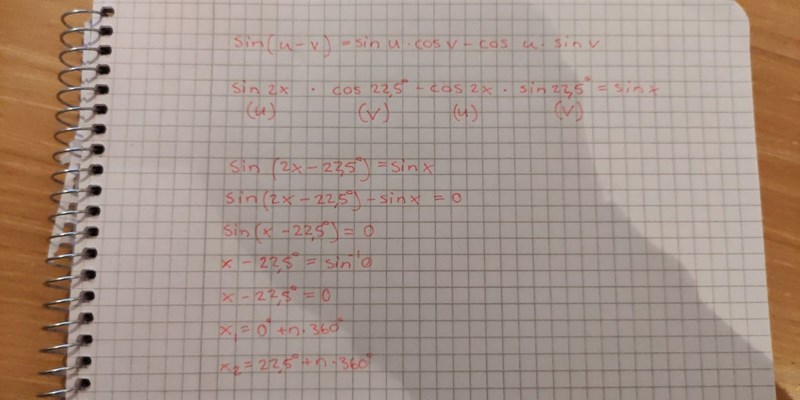 sin(u-v) = sin u · cos v - cos u · sin v
sin 2x · cos 22,5° - cos 2x · sin 22,5° = sin x
(u) (v) (u) (v)
sin (2x - 22,5°) = sin x
sin(2x - 22,5°) - sin x = 0
sin(x - 22,5°) = 0
x - 22,5° = sin⁻¹ 0
x - 22,5° = 0
x₁ = 0° + n · 360°
x₂ = 22,5° + n · 360°